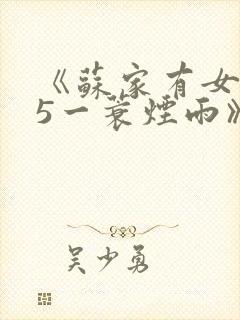 《蘇家有女
5一蓑煙雨》
吴少勇